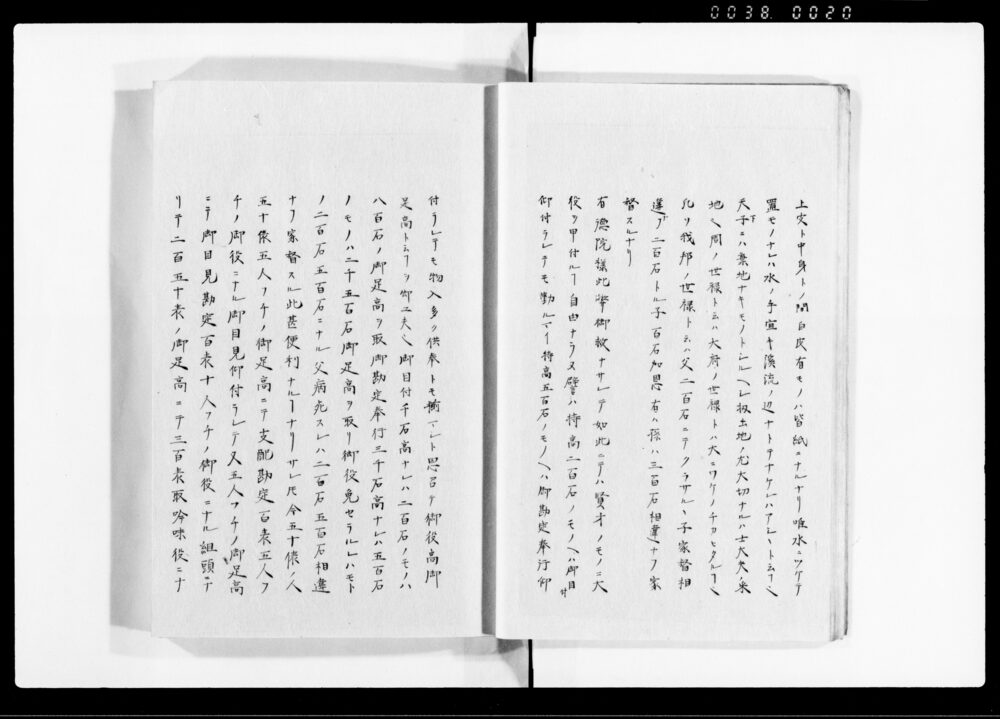 0038 0020
上文ト中身トノ間白皮有モノハ皆紙ニナルナリ唯水ニツケテ
置モノナレハ水ノ手宜キ濱流ノ辺ナトヲナケレハアシヽト云フヿ
天子ニハ棄地ナキモノトシルヘシ扨土地ノ尤大切ナルハ士大夫ノ采
地ヘ周ノ世禄ト云ハ大府ノ世禄トハ大ニワケノチカヒタルヿヽ
凡ソ我邦ノ世禄ト云ハ父二百石ニテクラサル子家督相
違ナフ二百石トル子百石加恩有ハ孫ハ三百石相違ナフ家
督スルナリ
有徳院様此幣御救ナサレテ如此ニテハ賢才ノモノニ大
役ヲ甲付ルヿ自由ナラヌ譬ハ持高二百石ノモノヘハ御目付
仰付ラレテモ勤ルマイ持高五百石ノモノヘハ御勘定奉行仰
付ラレテモ物入多ク供奉トモ揃マシト思召テ御役高御
足高ト云フヲ御工夫ヘ御目付千石高ナレハ二百石ノモノハ
八百石ノ御足高ヲ取御勘定奉行三千石高ナレハ五百石
ノモノハ二千五百石御足高ヲ取リ御役免セラルレハモト
ノ二百石五百石ニナル父病死スレハ二百石五百石相違
ナフ家督スル此甚便利ナルヿナリサレ𪜈今五十俵ノ人
五十俵五人フチノ御足高ニテ支配勘定百表五人フ
チノ御役ニナル御目見仰付ラレテ又五人フチノ御足高
ニテ御目見勘定百表十人フチノ御役ニナル組頭ニテ
リテ二百五十表ノ御足高ニテ三百表取吟味役ニナ